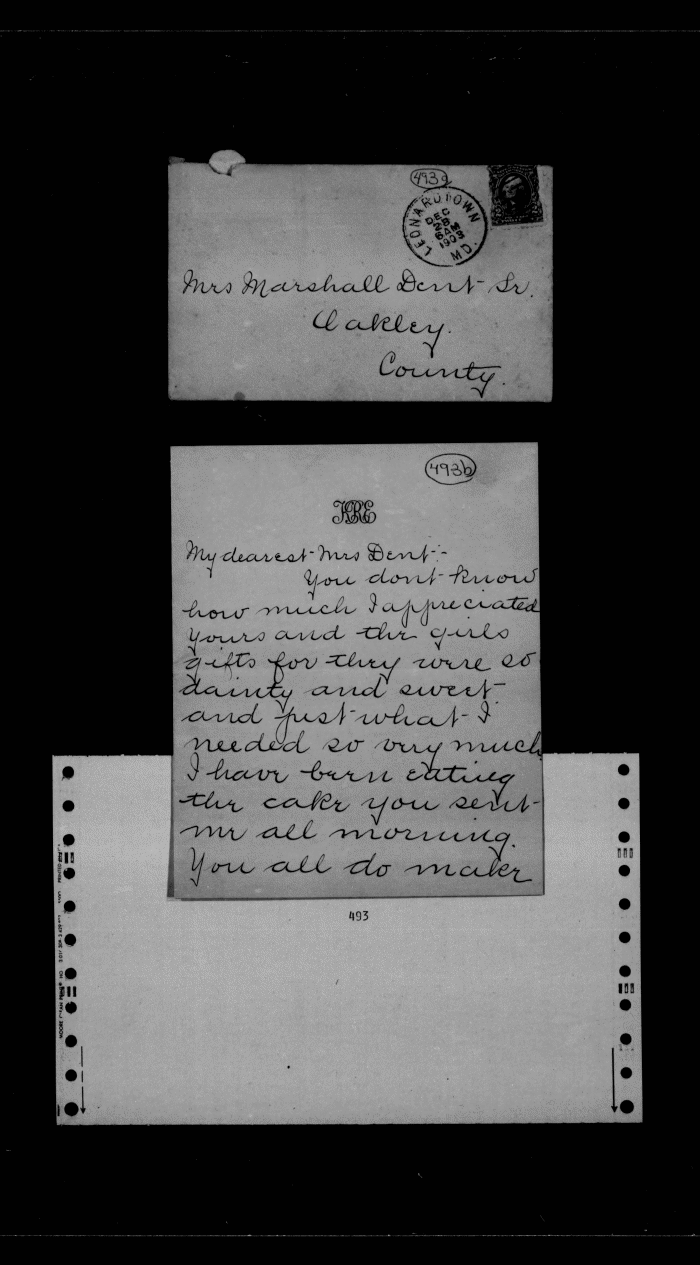 493a
LEONARDTOWN
DEC
28
6 AM
1903
MD.
Mrs Marshall Dent Sr.
Oakley.
County.
493b
My dearest Mrs Dent:-
You dont know
how much I appreciated
yours and the girls
gifts for they were so
dainty and sweet
and just what I
needed so very much
I have been eating
the cake you sent
me all morning.
You all do make
493